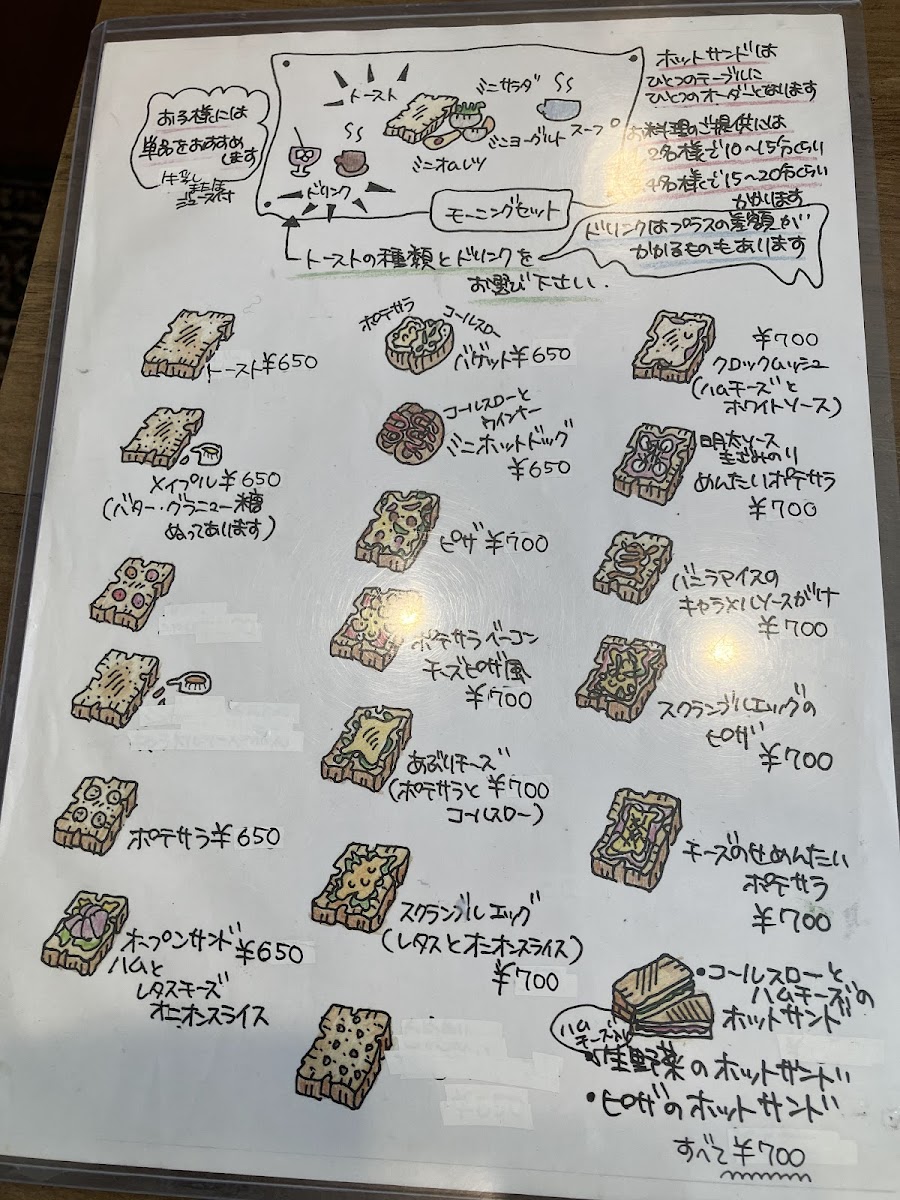 お子様には
単品をおすすめ
します
牛乳し
ジュース付
トースト
ミニサラダ
スープ
ミニヨーグルト
ミニオムレツ
ドリンク
モーニングセット
ホットサンドは
ひとつのテーブルに
ひとつのオーダーとなります
お料理のご提供には
2名様で10～15分くらい
4名様で15～20分くらい
かかります
ドリンクはプラスの差額が
かかるものもあります
トーストの種類とドリンクを
お選び下さい.
トースト¥650
メイプル¥650
(バター・グラニュー糖
ぬってあります)
ポテサラ¥650
オープンサンド¥650
ハムと
レタスチーズ
オニオンスライス
ポテサラ
コールスロー
バゲット¥650
コールスローと
ウインナー
ミニホットドッグ
¥650
ピザ¥700
ポテサラベーコン
チーズピザ風
¥700
あぶりチーズ
(ポテサラと ¥700
コールスロー)
スクランブルエッグ
(レタスとオニオンスライス)
¥700
¥700
クロックムッシュ
(ハムチーズと
ホワイトソース)
明太ソース
きざみのり
めんたいポテサラ
¥700
バニラアイスの
キャラメルソースがけ
¥700
スクランブルエッグの
ピザ
¥700
チーズのせめんたい
ポテサラ
¥700
•コールスローと
ハムチーズの
ホットサンド
ハム
チーズ入り
生野菜のホットサンド
•ピザのホットサンド
すべて¥700